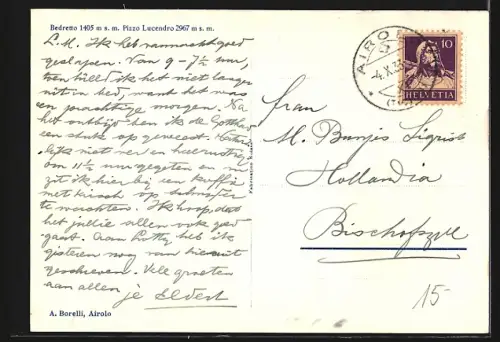 Bedretto 1405 m s. m. Pizzo Lucendro 2967 m s. m.
L. M. Ik heb vannacht goed
geslapen. Van 9 - 7½ uur,
toen hield ik het niet langer
uit in bed, want het was
een prachtige morgen. Na
het ontbijt ben ik de Gotthard
een stuk op geweest.
lijk niet ver en heel rustig
om 11½ uur gegeten en nu
zit ik hier bij een koffie
met kirsch op
te wachten. Ik hoop, dat
het jullie allen ook goed
gaat. Aan heb ik
gisteren nog van hieruit
geschreven. Vele groeten
aan allen je
A. Borelli, Airolo
AIROLO
10
HELVETIA
Frau
M. Bunjes Sigrist
Hollandia
Bischofszell
15-